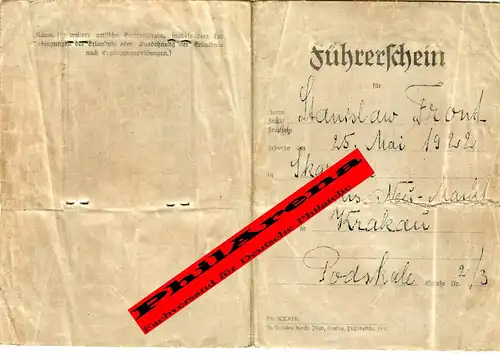 (Raum für weitere amtliche Eintragungen, insbesondere für
Bedingungen der Erlaubnis oder Ausdehnung der Erlaubnis
nach Ergänzungsprüfungen.)
Führerschein
für
Herrn
Stanislaw Front
geboren am 25. Mai 1922
in
Neu-Markt
in Krakau
Podskale Straße Nr. 2/3
PhilArena
Fachversand für Deutsche Philatelie